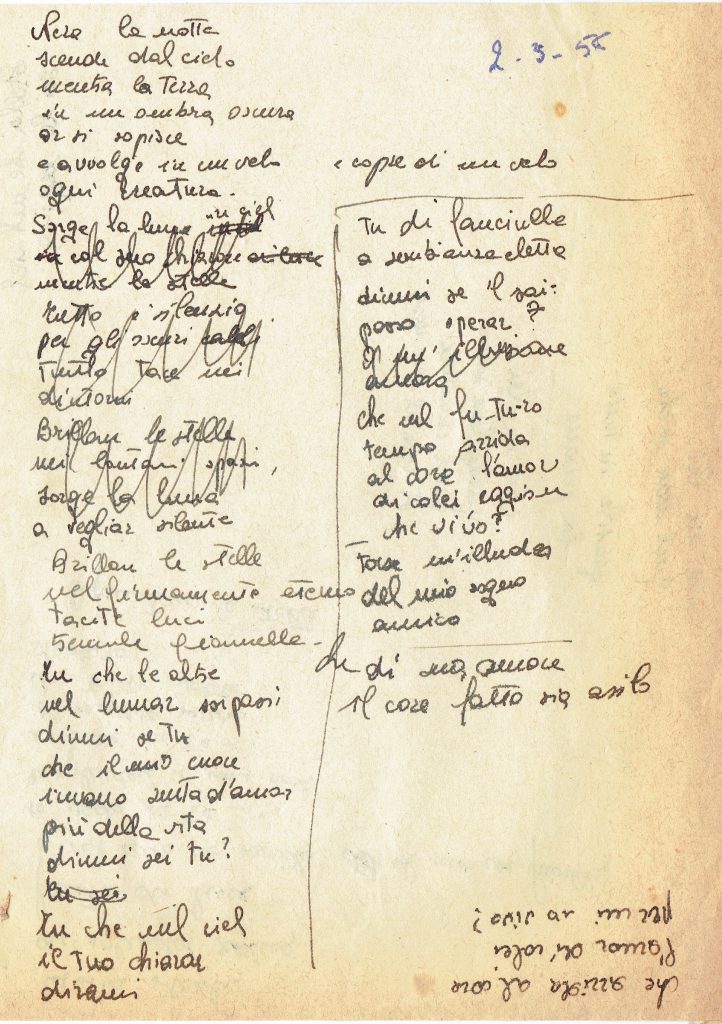 Nera la notte
scende dal cielo
mentre la Terra
in un ombra oscura
or si sopisce
e avvolge in un velo
ogni creatura.
Sorge la luna in ciel
col suo chiarore
mentre le stelle
tutto è silenzio
per gli oscuri
Tutto tace nei
dintorni
Brillan le stelle
nei lontani spazi,
sorge la luna
a vegliar silente
Brillan le stelle
nel firmamento eterno
tacite luci
tremule fiammelle.
Tu che le altre
nel lumar sorpassi
dimmi se tu
che il mio cuore
umano senta d'amor
più della vita
dimmi sei tu?
tu sei
tu che nel ciel
il tuo chiaror
dirami
2-3-58
e copre di un velo
Tu di fanciulla
a sembianza eletta
dimmi se il sai:
posso sperar?
O m'illusione
ancora
che nel futuro
tempo arrida
al core l'amor
di colei
che vivo?
Forse m'illudo
del mio sogno
amico
che di mia amore
il core fatto sia asilo
che arrida al core
l'amor di colei
per cui io vivo?